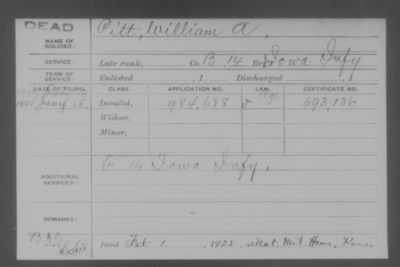 DEAD
NAME OF SOLDIER: Pitt, William A.
SERVICE: Late rank, Co. B, 14 Iowa Infy
TERM OF SERVICE: Enlisted , 1 Discharged , 1
DATE OF FILING. CLASS. APPLICATION NO. LAW. CERTIFICATE NO.
1891 Jany 28, Invalid, 984,688 693,136
Widow,
Minor,
ADDITIONAL SERVICES: 14 Iowa Infy,
REMARKS:
Died Feb 1 1925, at Nat. Mil. Home, Kans.